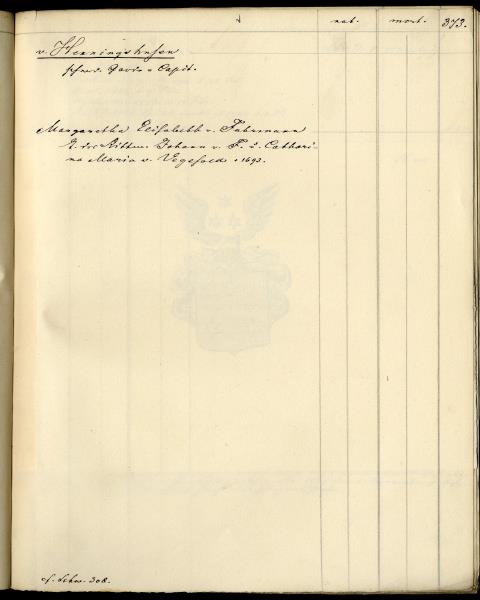 nat. mort. 373.
v. Henningshusen
schwed. Garde-Capit.
Margaretha Elisabeth v. Fuhrmann
T. des Rittm. Johann v. F. u. Cathari-
na Maria v. Vegesack. 1693.
cf. Schw. 308.